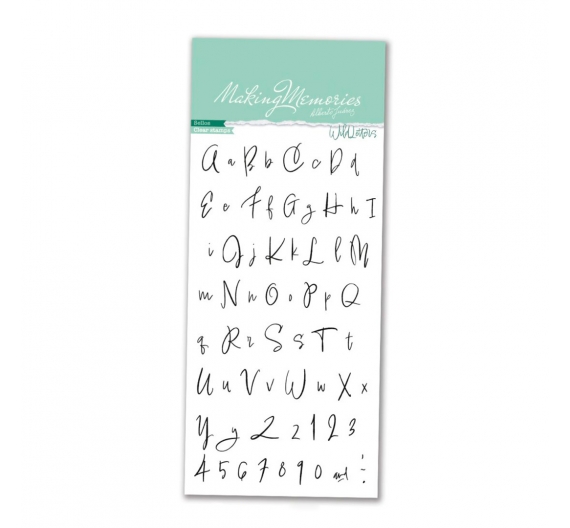 Making Memories
Sellos
Clear stamps
A a B b C c D d
E e F f G g H h I
i J j K k L l M
m N n O o P p Q
q R r S s T t
U u V v W w X x
Y y Z z 1 2 3
4 5 6 7 8 9 0 and ! ; -